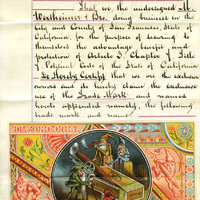 That we the undersigned M.
Wertheimer & Bro. doing business in the
City and County of San Francisco, State of
California, for the purpose of securing to
themselves the advantage, benefit and
protection of Article 3, Chapter 7, Title
of Political Code of the State of California
Do Hereby Certify that we are the exclusive
owners and do hereby claim the exclusive
use of the Trade Mark and named
hereto appended namely, the following
trade mark and name.